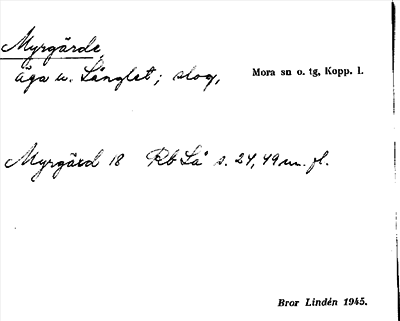 Myrgärde,
äga u. Långlet; skog,
Mora sn o. tg, Kopp. l.
Myrgärd 18 Rb Lå s. 24, 49 m. fl.
Bror Lindén 1945.